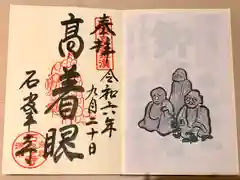 奉拝
令和六年
九月二十日
高着眼
石峯寺